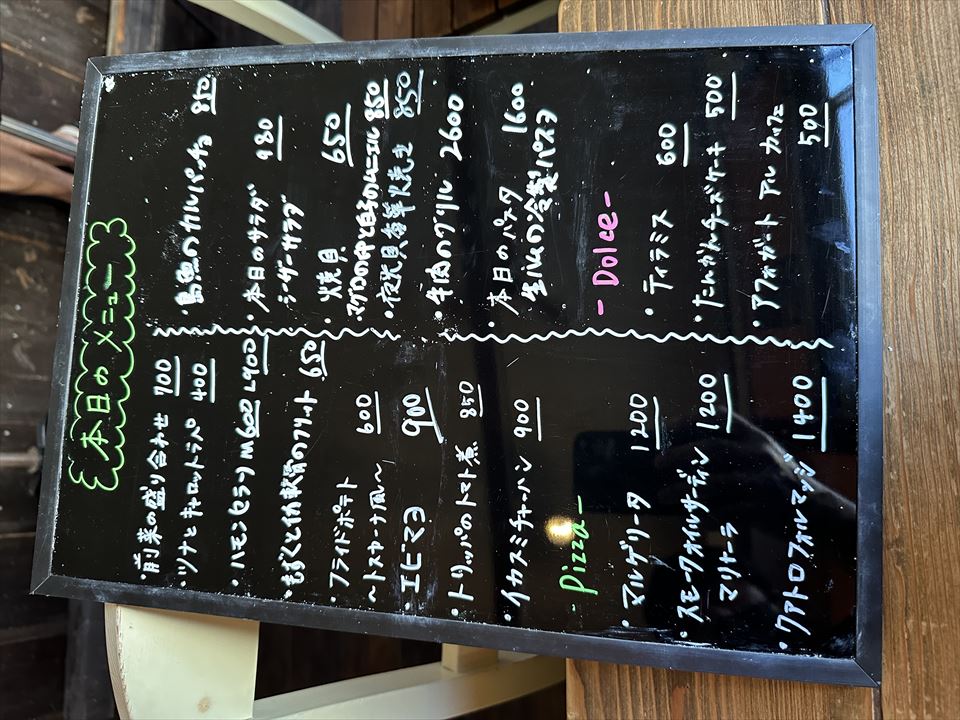 本日のメニュー
・前菜の盛り合わせ 700
・ツナとキャロットラペ 400
・ハモンセラーノ M600 L900
・もずくと軟骨のフリット 650
・フライドポテト
～トスカーナ風～ 600
・エビマヨ 900
・トリッパのトマト煮 850
・イカスミチャーハン 900
- Pizza -
・マルゲリータ 1200
・スモークオイルサーディン
マリナーラ 1200
・クアトロフォルマッジ 1400
・島魚のカルパッチョ 850
・本日のサラダ
シーザーサラダ 980
・焼貝 650
・マグロの中とろのムニエル 850
・夜光貝香草焼き 850
・牛肉のグリル 2600
・本日のパスタ
生ハムの冷製パスタ 1600
- Dolce -
・ティラミス 600
・たんかんチーズケーキ 500
・アフォガート アル カッフェ
500